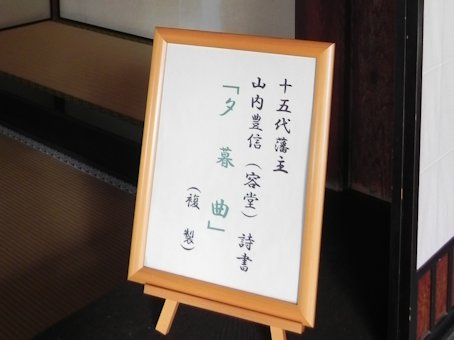 十五代藩主
山内豊信（容堂）詩書
「夕暮曲」
（複製）